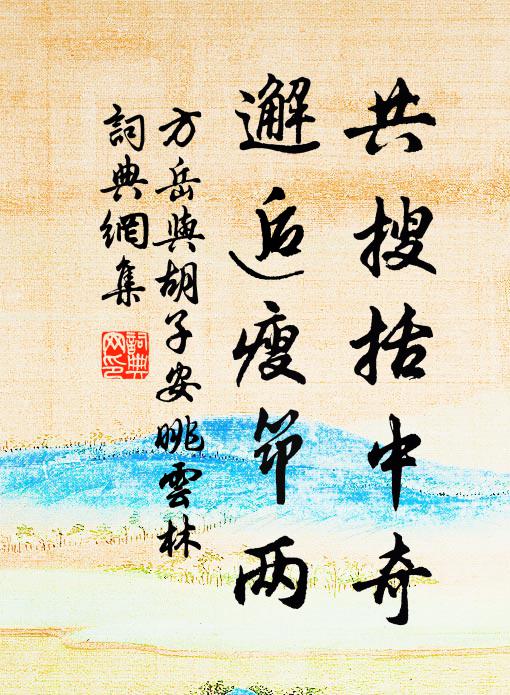 共搜括中奇
邂逅瘦筇两
方岳與胡子安眺雲林
詞典網集
詞典网印